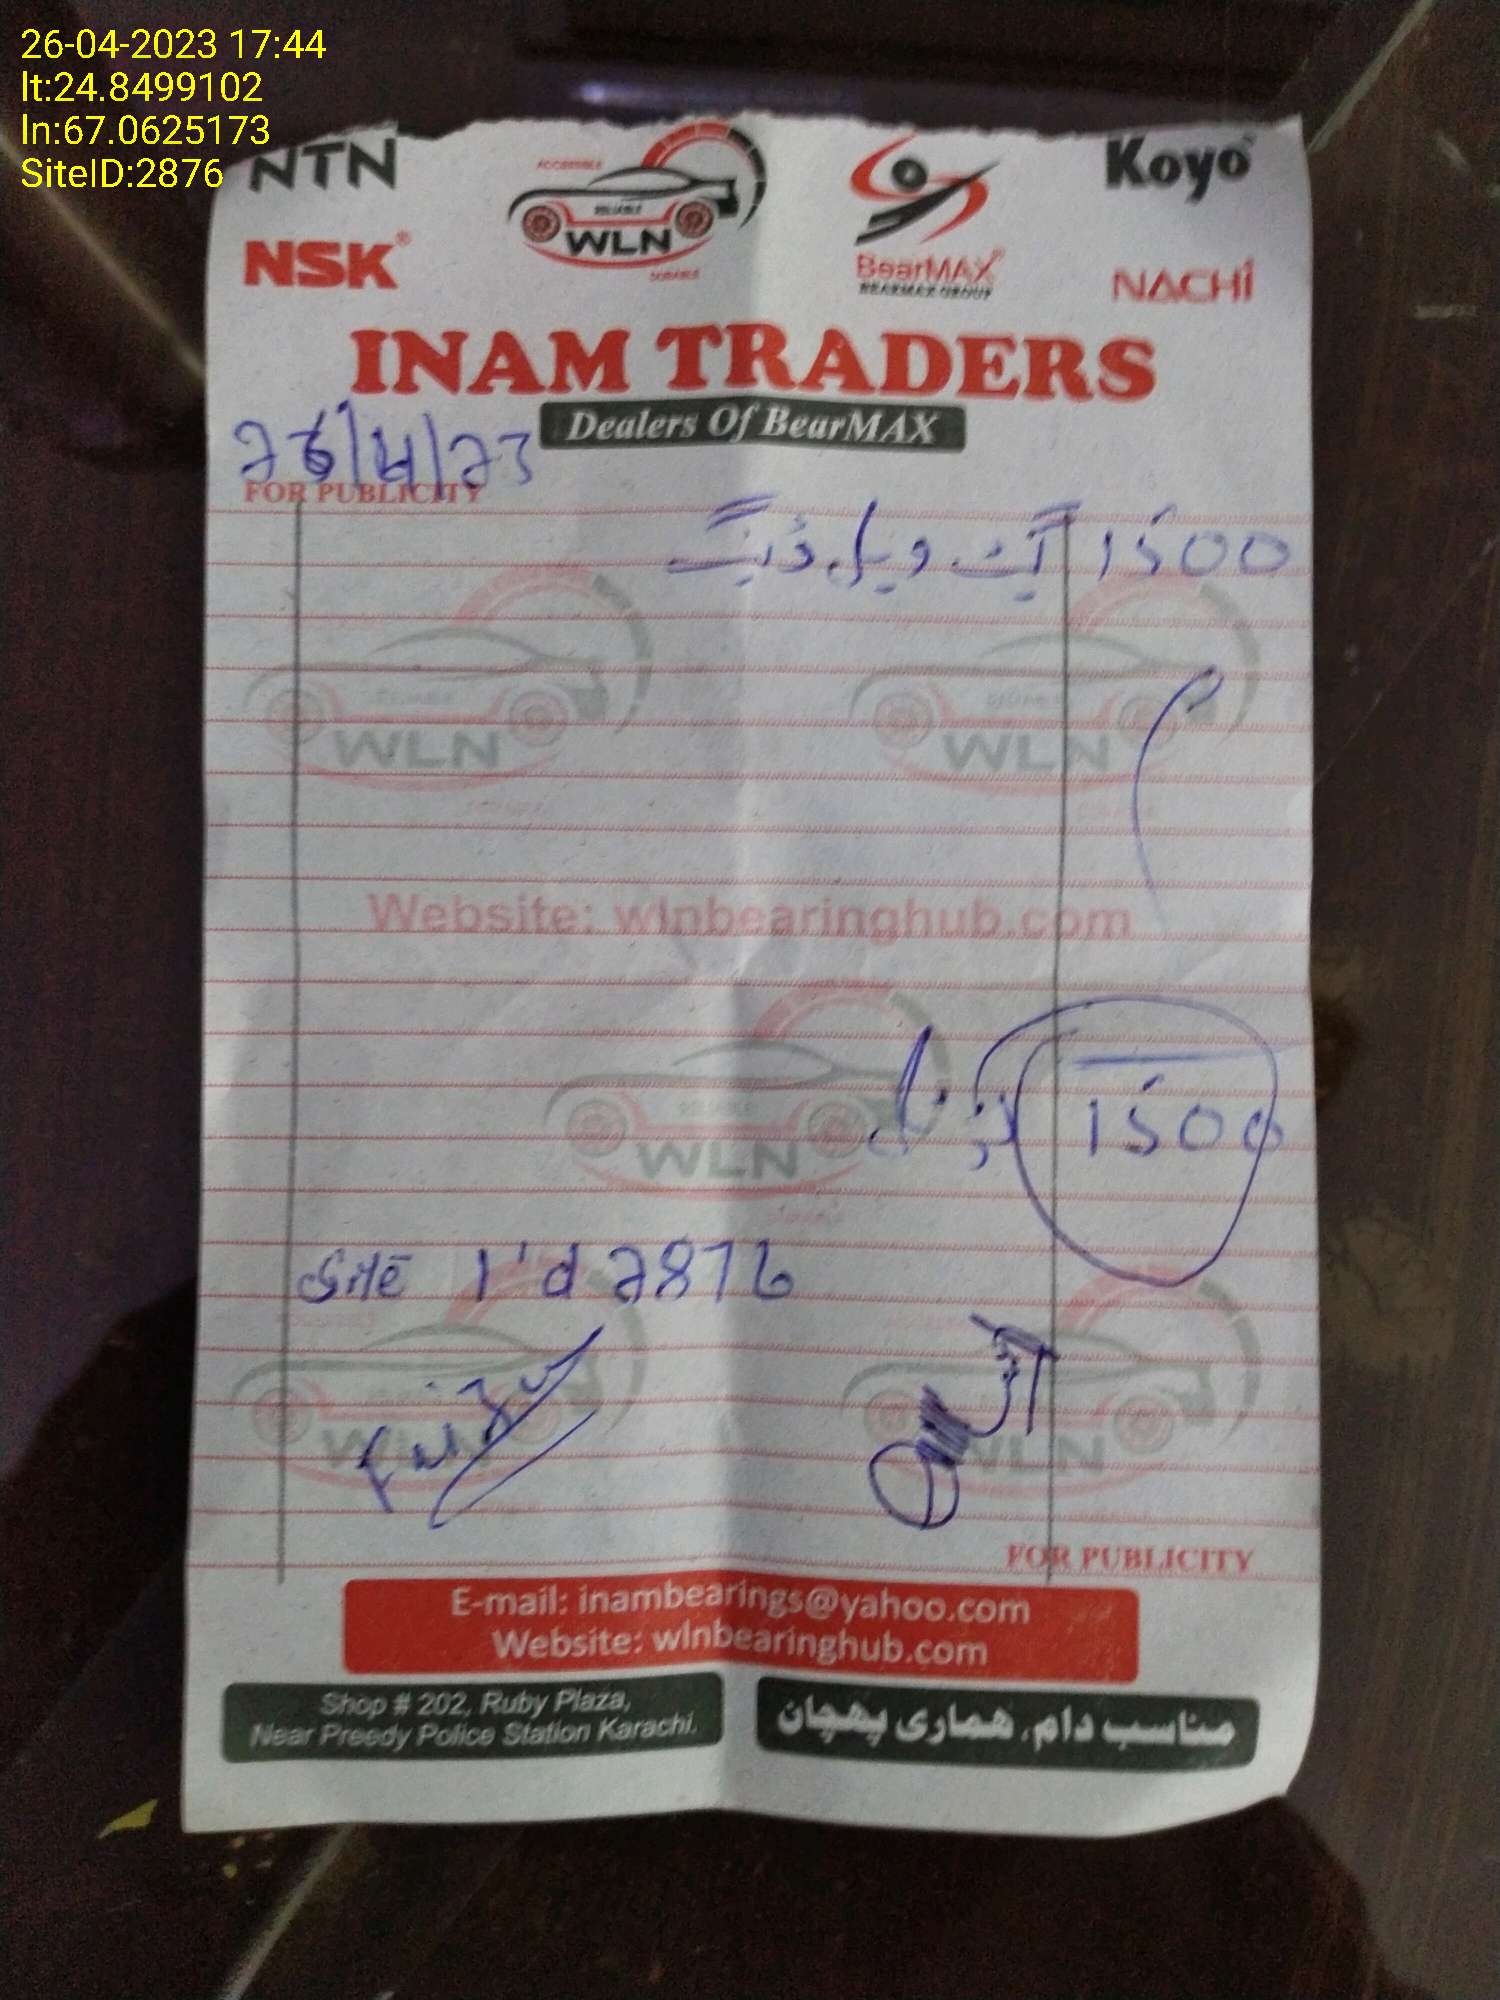 26-04-2023 17:44
lt:24.8499102
ln:67.0625173
SiteID:2876
NTN
ACCESSIBLE
RELIABLE
WLN
DURABLE
Koyo
NSK®
BearMAX
BEARMAX GROUP
NACHi
INAM TRADERS
Dealers Of BearMAX
26/4/23
FOR PUBLICITY
1500 گیٹ ویلڈنگ
WLN
WLN
Website: wlnbearinghub.com
1500 ٹوٹل
RELIABLE
WLN
Site I'd 2876
WLN
WLN
FOR PUBLICITY
E-mail: inambearings@yahoo.com
Website: wlnbearinghub.com
Shop # 202, Ruby Plaza,
Near Preedy Police Station Karachi.
مناسب دام، ہماری پہچان